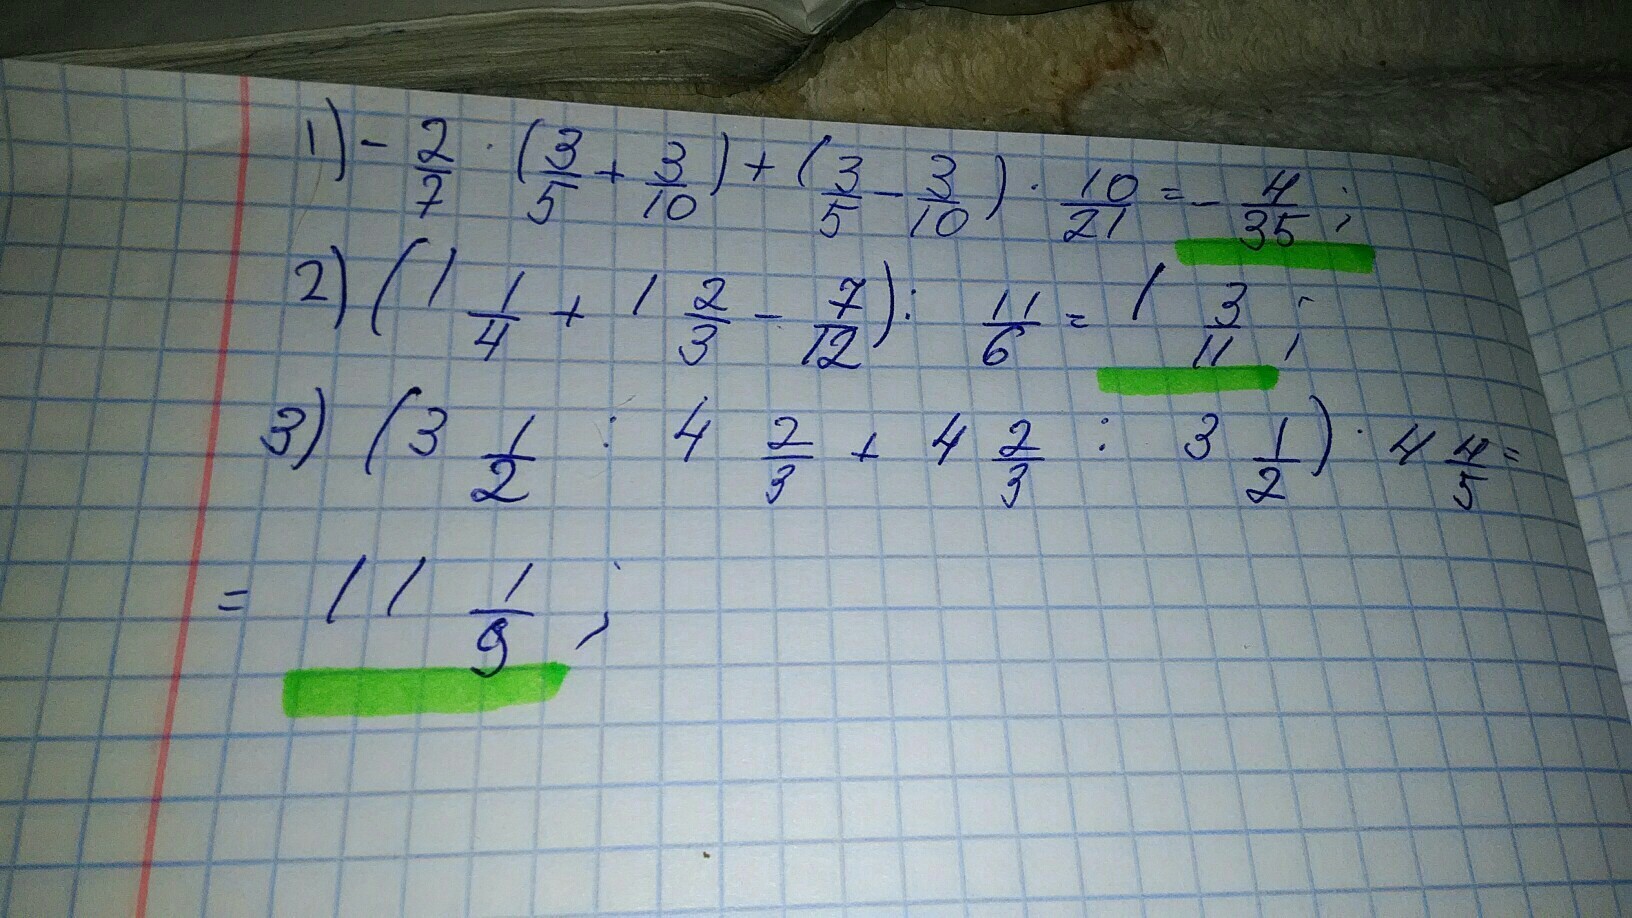 1) - 2/7 · (3/5 + 3/10) + (3/5 - 3/10) · 10/21 = - 4/35 ;
2) (1 1/4 + 1 2/3 - 7/12) : 11/6 = 1 3/11 ;
3) (3 1/2 : 4 2/3 + 4 2/3 : 3 1/2) · 4 4/5 =
= 11 1/9 ;